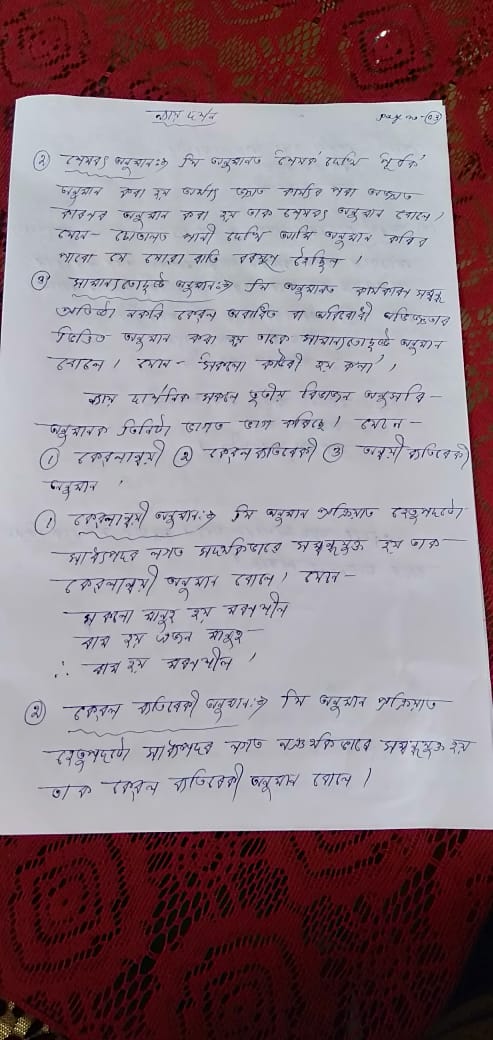 ন্যায় দৰ্শন page no - 03
② শেষবৎ অনুমান :⇒ যি অনুমানত 'শেষক' দেখি 'পূৰ্বক'
অনুমান কৰা হয় অৰ্থাৎ জ্ঞাত কাৰ্যৰ পৰা অজ্ঞাত
কাৰণৰ অনুমান কৰা হয় তাক শেষবৎ অনুমান বোলে।
যেনে - চোতালত পানী দেখি আমি অনুমান কৰিব
পাৰো যে যোৱা ৰাতি বৰষুণ হৈছিল।
③ সামান্যতোদৃষ্ট অনুমান :⇒ যি অনুমানত কাৰ্যকাৰণ সম্বন্ধ
প্ৰতিষ্ঠা নকৰি কেৱল অবাধিত বা অবিৰোধী অভিজ্ঞতাৰ
ভিত্তিত অনুমান কৰা হয় তাকে সামান্যতোদৃষ্ট অনুমান
বোলে। যেনে - 'সকলো কাউৰী হয় কলা'।
ন্যায় দাৰ্শনিক সকলে তৃতীয় বিভাজন অনুসৰি -
অনুমানক তিনিটা ভাগত ভাগ কৰিছে। যেনে -
① কেৱলান্বয়ী ② কেৱল ব্যতিৰেকী ③ অন্বয়ী ব্যতিৰেকী
অনুমান।
① কেৱলান্বয়ী অনুমান :⇒ যি অনুমান প্ৰক্ৰিয়াত হেতুপদটো
সাধ্যপদৰ লগত সদৰ্থকভাৱে সম্বন্ধযুক্ত হয় তাক
কেৱলান্বয়ী অনুমান বোলে। যেনে -
সকলো মানুহ হয় মৰণশীল
ৰাম হয় এজন মানুহ
∴ ৰাম হয় মৰণশীল।
② কেৱল ব্যতিৰেকী অনুমান :⇒ যি অনুমান প্ৰক্ৰিয়াত
হেতুপদটো সাধ্যপদৰ লগত নঞৰ্থকভাৱে সম্বন্ধযুক্ত হয়
তাক কেৱল ব্যতিৰেকী অনুমান বোলে।